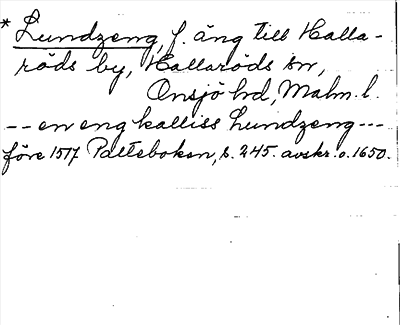 * Lundzeng, f. äng till Halla-
röds by, Hallaröds sn,
Onsjö hd, Malm. l.
-- en eng kalliss Lundzeng ---
före 1517 Palteboken, s. 245. avskr. o. 1650.